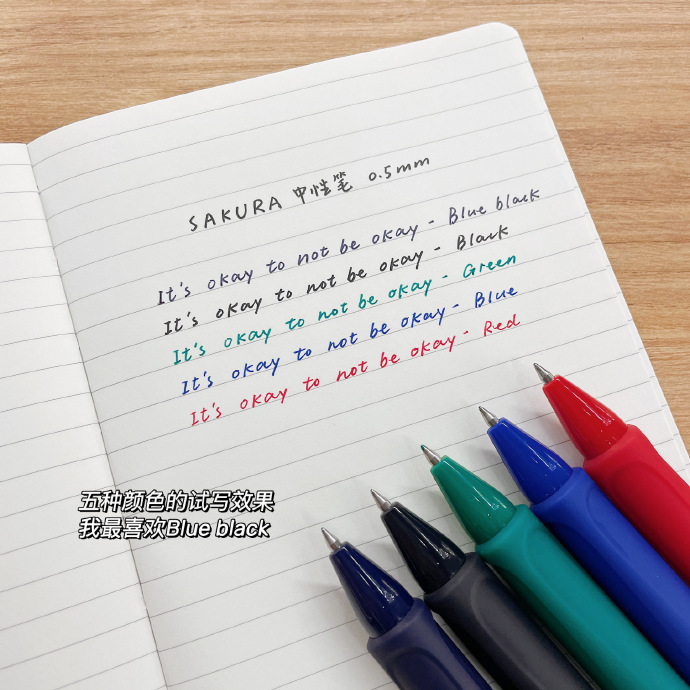 SAKURA 中性笔 0.5mm
It's okay to not be okay - Blue black
It's okay to not be okay - Black
It's okay to not be okay - Green
It's okay to not be okay - Blue
It's okay to not be okay - Red
五种颜色的试写效果
我最喜欢Blue black